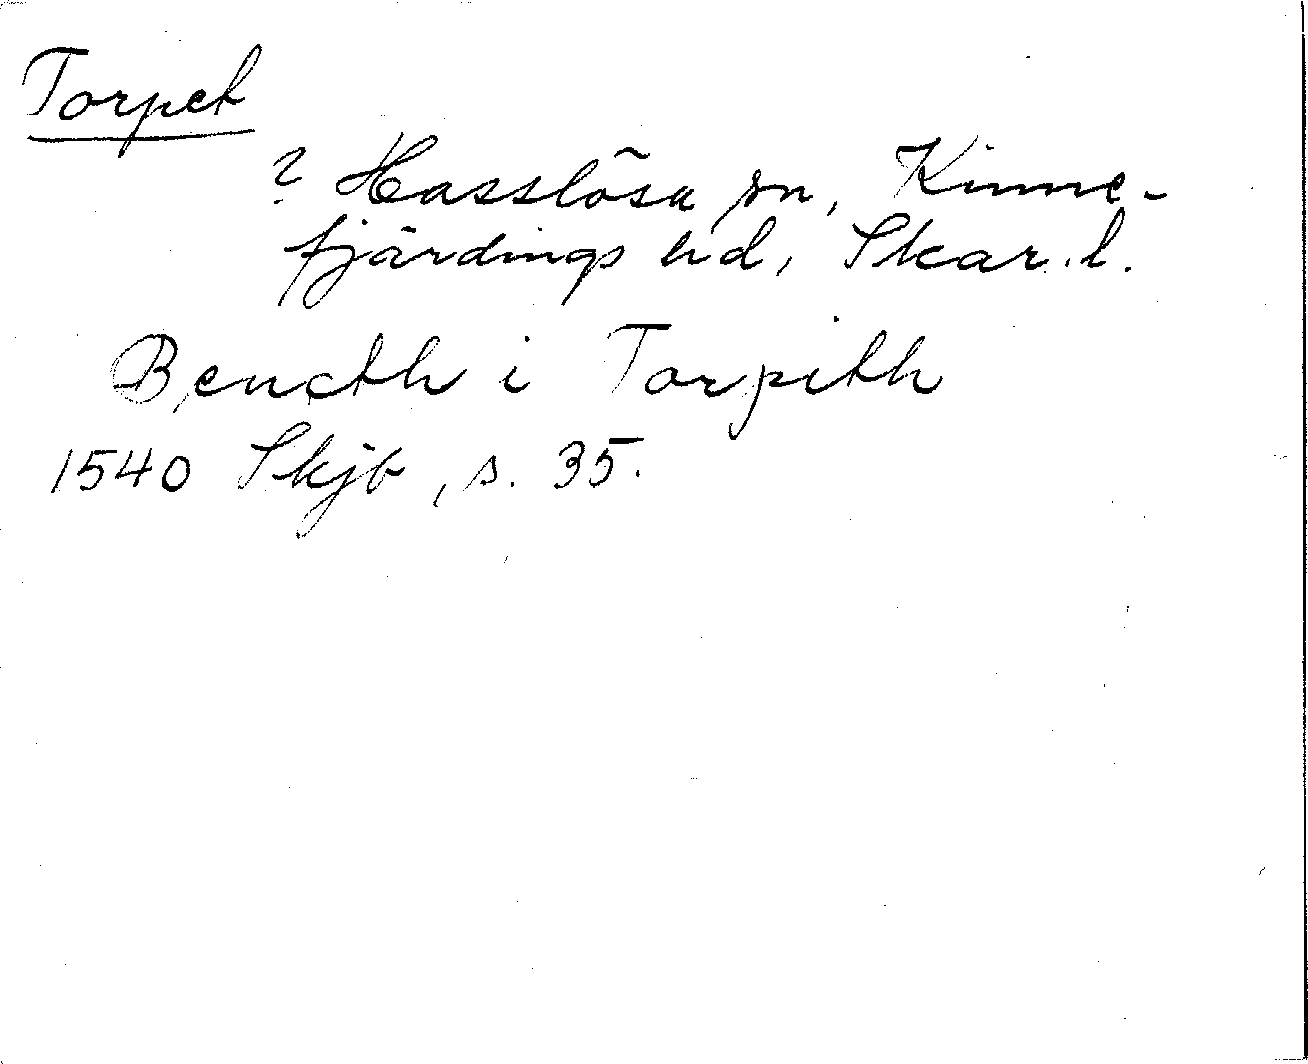 Torpet
? Hasslösa sn, Kinne-
fjärdings hd, Skar. l.
Bencth i Torpith
1540 Skjb, s. 35.